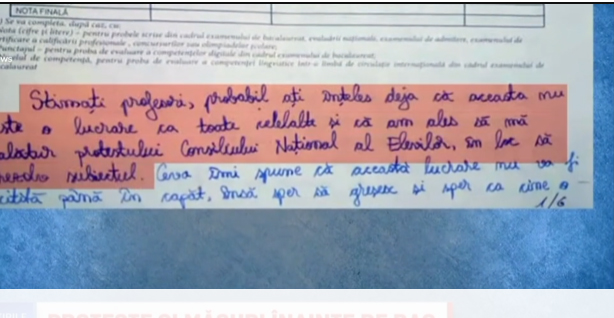 NOTA FINALĂ
) Se va completa, după caz, cu:
Nota (cifre și litere) – pentru probele scrise din cadrul examenului de bacalaureat, evaluării naționale, examenului de admitere, examenului de
rtificare a calificării profesionale, concursurilor sau olimpiadelor școlare;
Punctajul – pentru proba de evaluare a competențelor digitale din cadrul examenului de bacalaureat;
elul de competență, pentru proba de evaluare a competenței lingvistice într-o limbă de circulație internațională din cadrul examenului de
calaureat
Stimați profesori, probabil ați înțeles deja că aceasta nu
ste o lucrare ca toate celelalte și că am ales să mă
alătur protestului Consiliului Național al Elevilor, în loc să
rezolv subiectul. Ceva îmi spune că această lucrare nu va fi
citită până în capăt, însă sper să greșesc și sper ca cine o
1/6
PROTESTE ȘI MĂSURI ÎNAINTE DE BAC